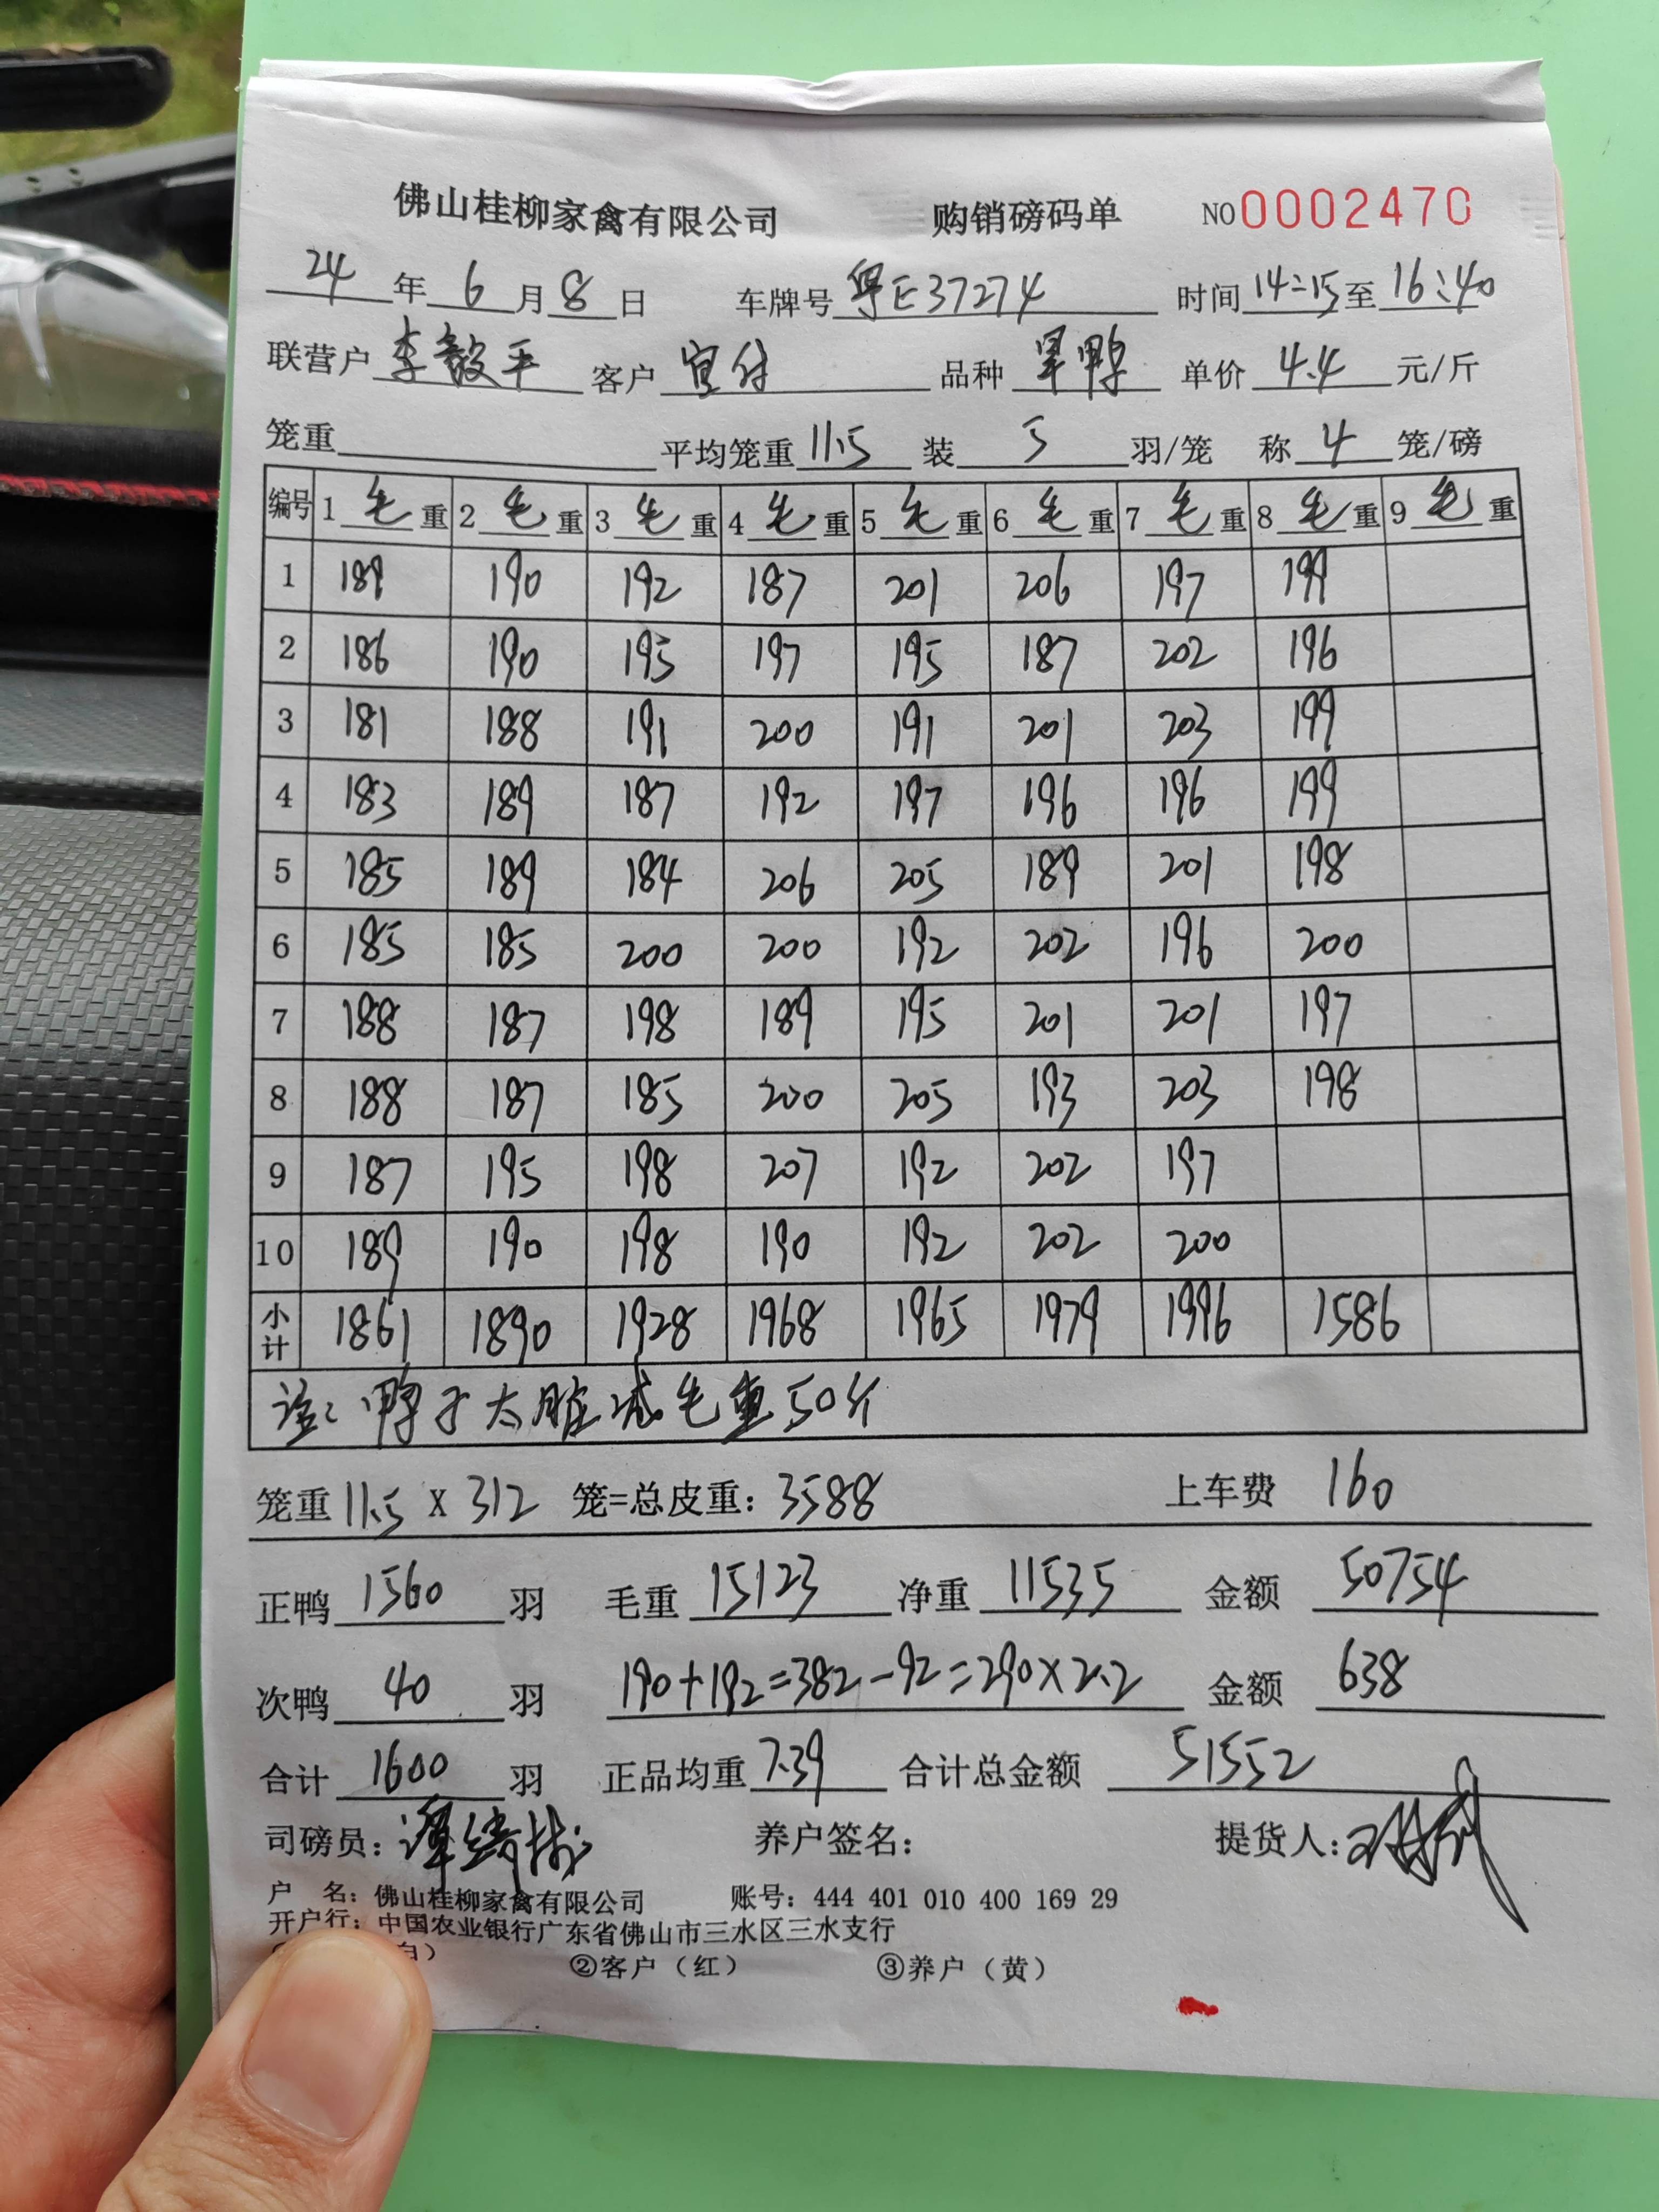 佛山桂柳家禽有限公司 购销磅码单 NO 0002470
24年6月8日 车牌号 粤E37274 时间 14:15至16:40
联营户 李毅平 客户 宜付 品种 旱鸭 单价 4.4 元/斤
笼重 平均笼重 11.5 装 5 羽/笼 称 4 笼/磅
编号 1毛重 2毛重 3毛重 4毛重 5毛重 6毛重 7毛重 8毛重 9毛重
1 189 190 192 187 201 206 197 199
2 186 190 195 197 195 187 202 196
3 181 188 191 200 191 201 203 199
4 183 189 187 192 197 196 196 199
5 185 189 184 206 205 189 201 198
6 185 185 200 200 192 202 196 200
7 188 187 198 189 195 201 201 197
8 188 187 185 200 205 193 203 198
9 187 195 198 207 192 202 197
10 189 190 198 190 192 202 200
小计 1861 1890 1928 1968 1965 1979 1996 1586
注: 鸭子太脏减毛重50斤
笼重 11.5 X 312 笼=总皮重: 3588 上车费 160
正鸭 1560 羽 毛重 15123 净重 11535 金额 50754
次鸭 40 羽 190+192=382-92=290×2.2 金额 638
合计 1600 羽 正品均重 7.39 合计总金额 51552
司磅员: 养户签名: 提货人:
户 名: 佛山桂柳家禽有限公司 账号: 444 401 010 400 169 29
开户行: 中国农业银行广东省佛山市三水区三水支行
白) ②客户(红) ③养户(黄)